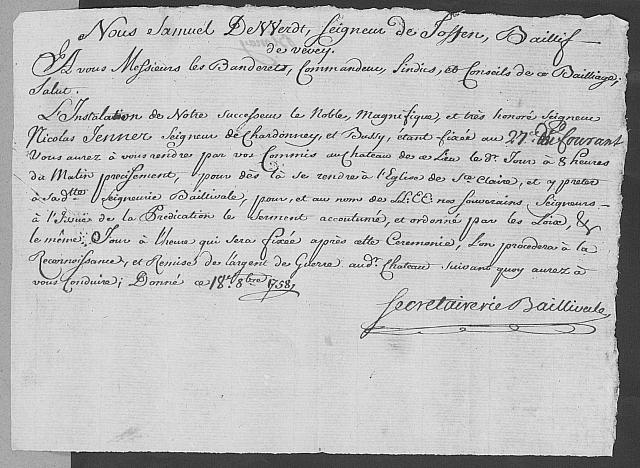 Nous Samuel DeWerdt, Seigneur de Toffen, Baillif
de vevey.
A vous Messieurs les Banderets, Commandeur, Sindics, et Conseils de ce Bailliage;
Salut.
L'Instalation de Notre successeur le Noble, Magnifique, et très honoré Seigneur
Nicolas Jenner Seigneur de Chardonney, et Bussy, étant fixée au 27e du Courant
Vous aurez à vous rendre par vos Commis au Chateau de ce Lieu le dt. Jour à 8 heures
du Matin precisement, pour dès là se rendre à l'Eglise de Ste Claire, et y prêter
à Sa dtte Seigneurie Baillivale, pour, et au nom de LL:EE: nos Souverains Seigneurs
à l'Issuë de la Predication le Serment accoutumé, et ordonné par les Loix, &
le même Jour à l'heure qui Sera fixée après cette Ceremonie, l'on procedera à la
Reconnoissance, et Remise de l'argent de Guerre aud. Chateau Suivant quoy aurez à
vous Conduire; Donné ce 18e. 8bre 1758,
Secretairerie Baillivale